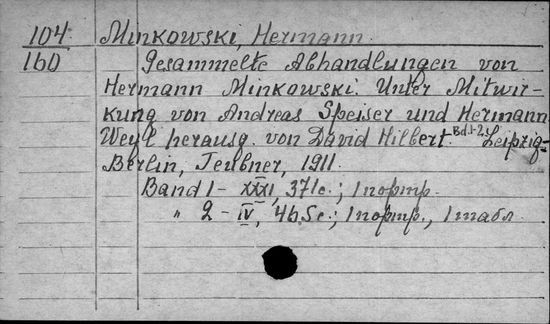 104 Minkowski, Hermann
160 Gesammelte Abhandlungen von
Hermann Minkowski. Unter Mitwir-
kung von Andreas Speiser und Hermann
Weyl herausg. von David Hilbert. Bd. 1-2. Leipzig-
Berlin, Teubner, 1911.
Band 1 - XXXI, 371с.; 1 портр.
" 2 - IV, 465с.; 1 портр., 1 табл.